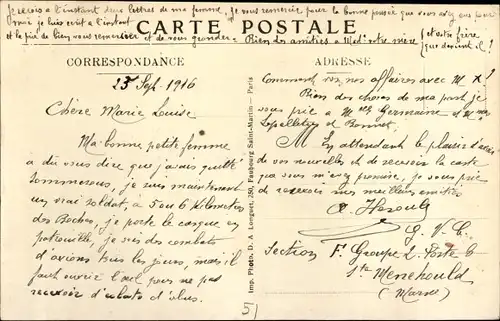 Je reçois à l'instant deux lettres de ma femme, je vous remercie pour la bonne pensée que vous avez eue pour
moi je lui écrit à l'instant
et la prie de bien vous remercier et de vous gronder. Bien des amitiés à Mad. votre mère et votre frère
que devient il?
CARTE POSTALE
CORRESPONDANCE
ADRESSE
25 Sept. 1916
Chère Marie Louise
Ma bonne petite femme
a dû vous dire que j'avais quitté
Sommerous, je suis maintenant
un vrai soldat, à 5 ou 6 kilomètres
des Boches, je porte le casque en
patrouille, je vois des combats
d'avions tous les jours, mais il
faut ouvrir l'œil pour ne pas
recevoir d'éclats d'obus.
Imp. Photo. D. A. Longuet, 250, Faubourg Saint-Martin — Paris
Comment vos affaires avec M. X?
Bien des choses de ma part je
vous prie à Germaine et
Lepelletier et Bonnet.
En attendant le plaisir d'avoir
de vos nouvelles et de recevoir la carte
que vous m'avez promise, je vous prie
de recevoir mes meilleures amitiés
A. Heroult
G. V. C.
Section F. Groupe L. Poste 6
Ste Menehould
(Marne)
51